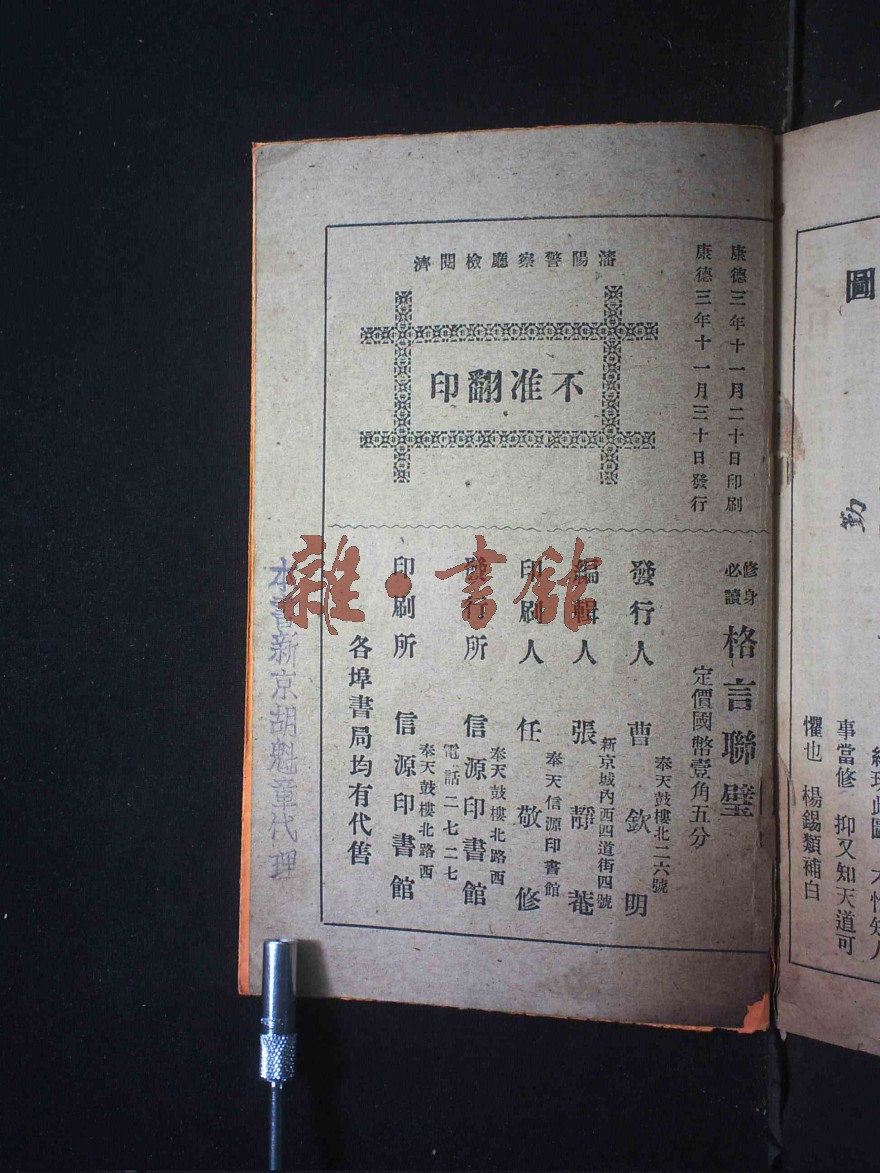 圖
勤
事當修 抑又知天道可
懼也 楊錫類補白
康德三年十一月二十日印刷
康德三年十一月三十日發行
瀋陽警察廳檢閱濟
不准翻印
修身必讀 格言聯璧
定價國幣壹角五分
發行人 曹欽明
奉天鼓樓北二六號
編輯人 張靜菴
新京城內西四道街四號
印刷人 任敬修
奉天信源印書館
發行所 信源印書館
奉天鼓樓北路西
電話二七二七
印刷所 信源印書館
奉天鼓樓北路西
各埠書局均有代售
本書新京胡魁章代理
雜·書館